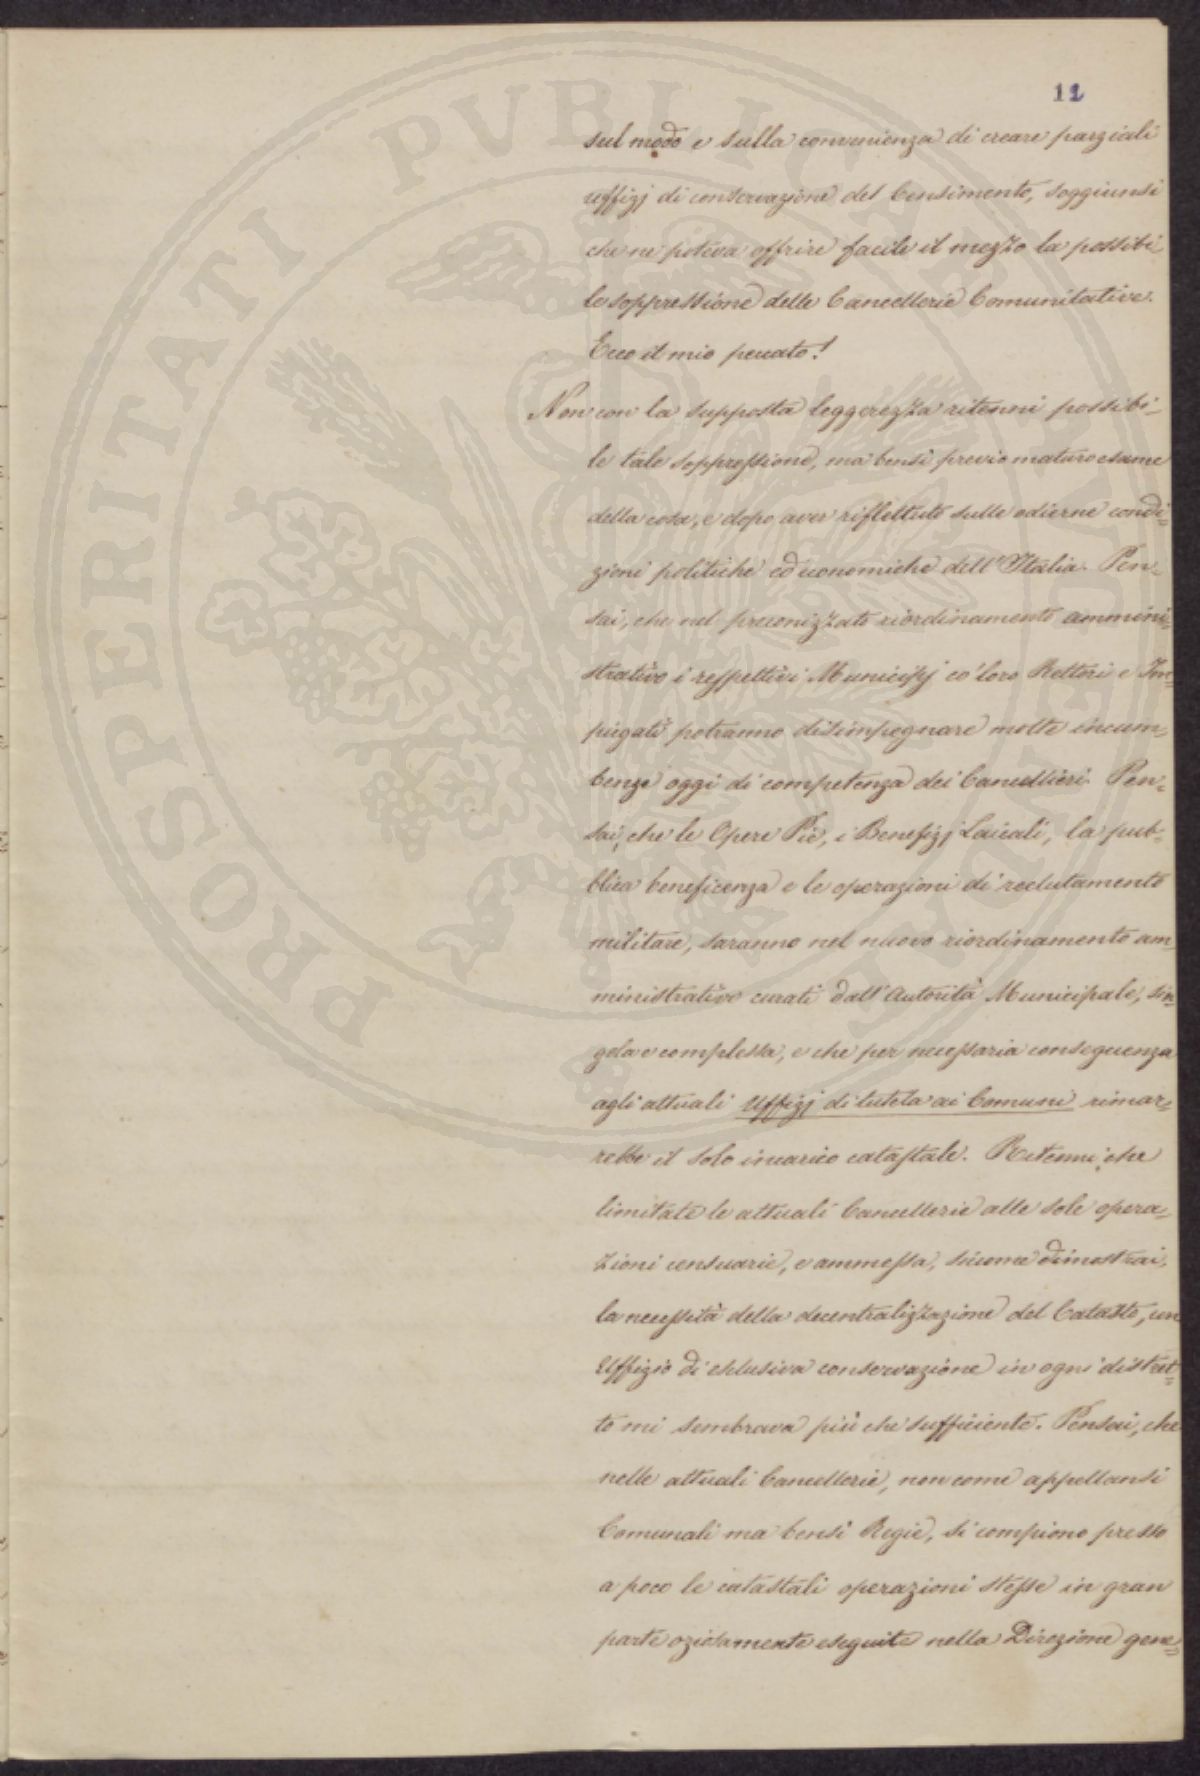 PROSPERITATI PUBLICAE AUGENDAE
12
sul modo e sulla convenienza di creare parziali
uffizj di conservazione del Censimento, soggiunsi
che ne poteva offrire facile il mezzo la possibi
le soppressione delle Cancellerie Comunitative.
Ecco il mio peccato!
Non con la supposta leggerezza ritenni possibi-
le tale soppressione, ma bensì previo maturo esame
della cosa, e dopo aver riflettuto sulle odierne condi-
zioni politiche ed economiche dell'Italia. Pen-
sai, che nel preconizzato riordinamento ammini-
strativo i respettivi Municipj co' loro Rettori e Im-
piegati potranno disimpegnare molte incum-
benze oggi di competenza dei Cancellieri. Pen-
sai, che le Opere Pie, i Benefizj Laicali, la pub-
blica beneficenza e le operazioni di reclutamento
militare, saranno nel nuovo riordinamento am-
ministrativo curati dall'Autorità Municipale, sin-
gola e complessa, e che per necessaria conseguenza
agli attuali Uffizj di tutela ai Comuni rimar-
rebbe il solo incarico catastale. Ritenni, che
limitate le attuali Cancellerie alle sole opera-
zioni censuarie, e ammessa, siccome dimostrai,
la necessità della decentralizzazione del Catasto, un
Uffizio di esclusiva conservazione in ogni distret-
to mi sembrava più che sufficiente. Pensai, che
nelle attuali Cancellerie, non come appellansi
Comunali ma bensì Regie, si compiono presso
a poco le catastali operazioni stesse in gran
parte oziosamente eseguite nella Direzione gene-